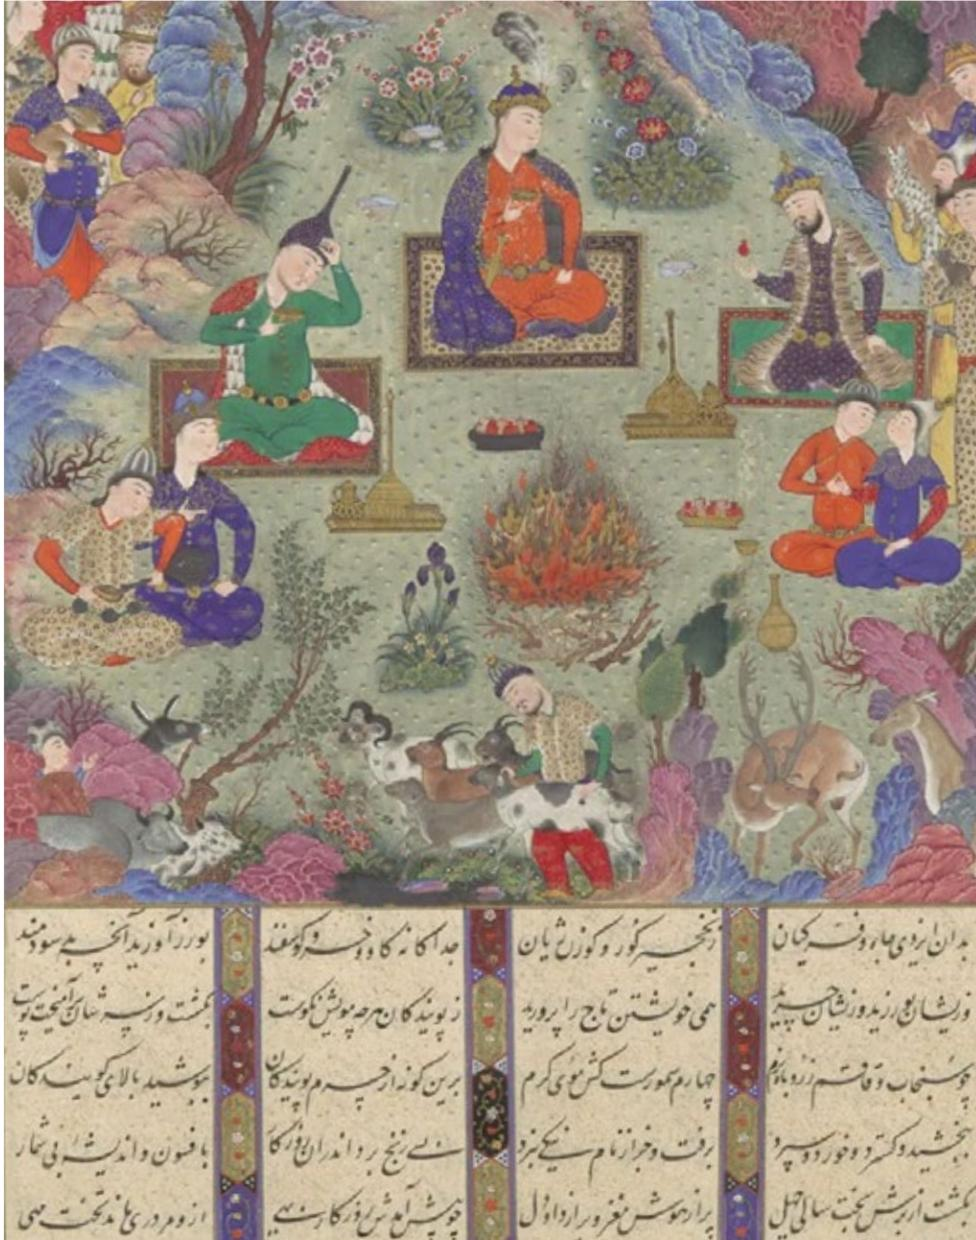 بدان ایزدی جاه و فر کیان زنخجیر کور و کوزن ژیان جدا کانه کاو و خر و کوسفند بورز آورید آنچه بد سودمند
وریشان بورزید وزیشان چرید همی خویشتن تاج را پرورید ز پویندکان هرچه مویش نکوست بکشت و ز سرشان برآهیخت پوست
چو سنجاب و قاقم ز روباه نرم چهارم سمورست کش موی کرم برین کونه از چرم پویندکان بپوشید بالای کویندکان
ببخشید و کسترد و خورد و سپرد برفت و جز از نام نیکی نبرد بسی رنج برد اندران روزکار بافسون و اندیشه بی شمار
بکشت ازبرش تخت سالی چهل پر از هوش مغز و پر از داد دل چو پیش آمدش روزکار بهی ازو مردری ماند تخت مهی